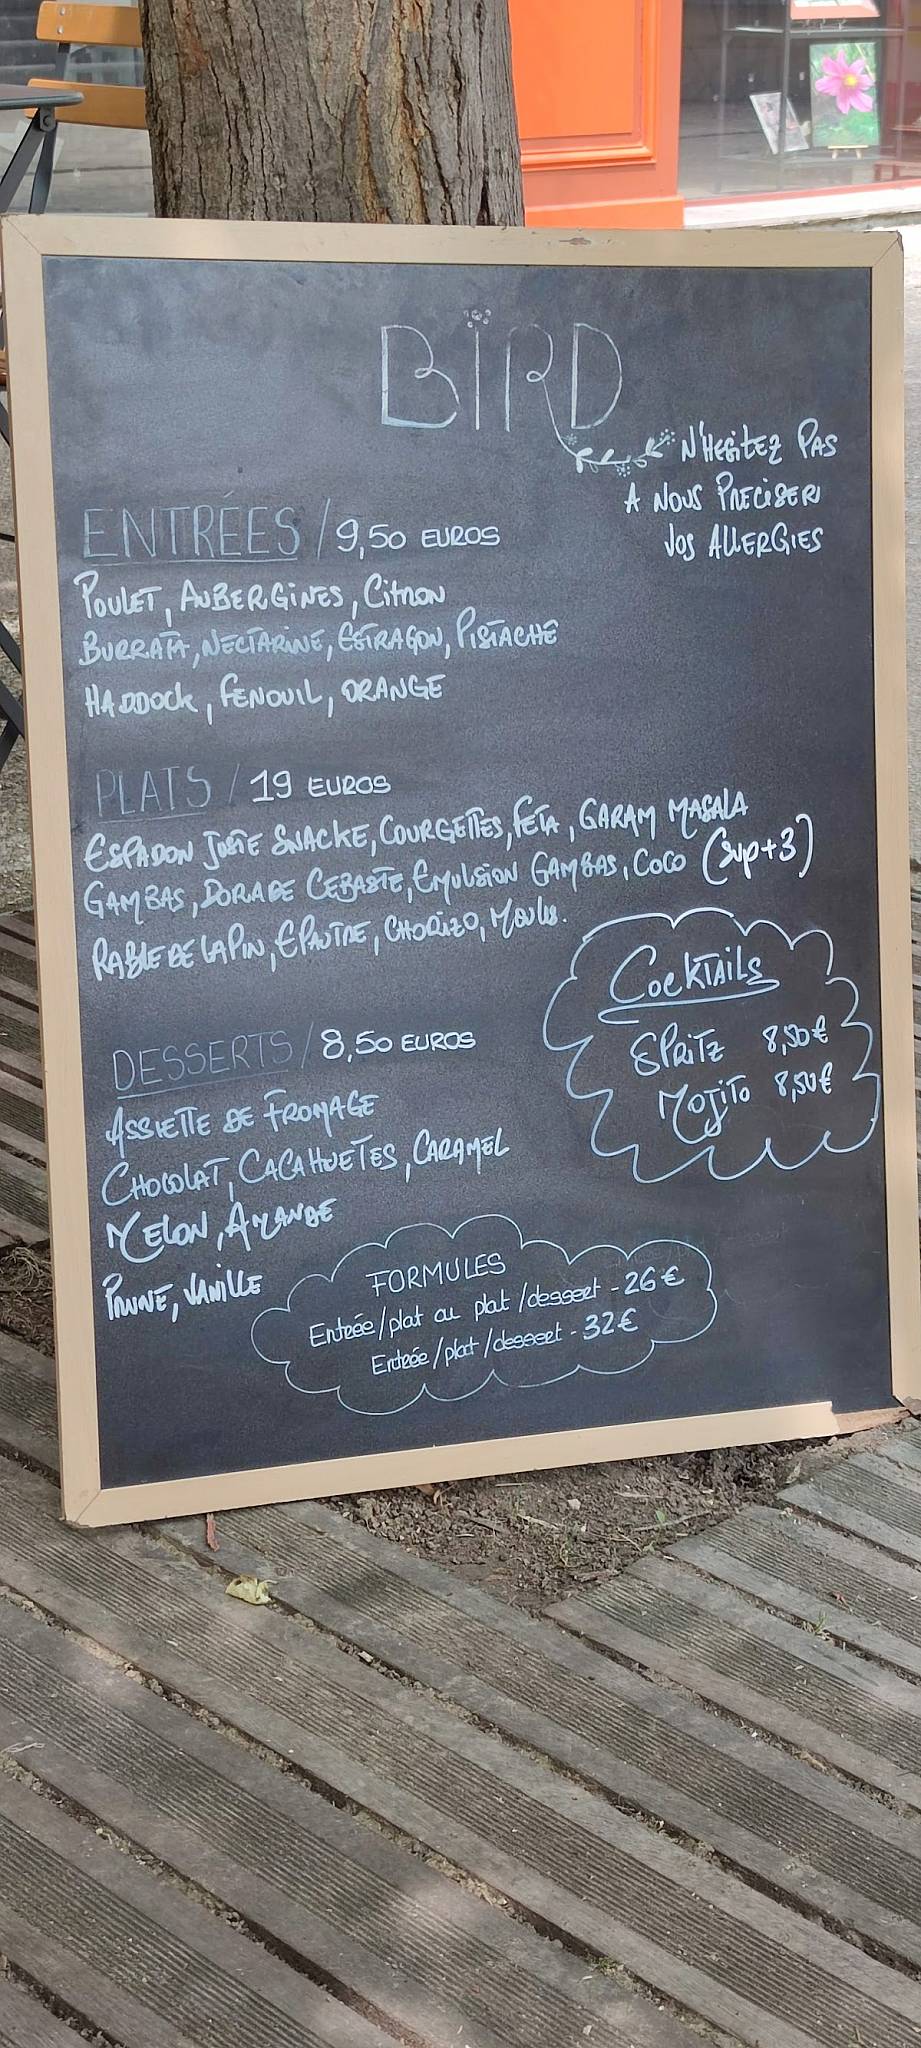 BÏRD
N'HESITEZ PAS
A NOUS PRECISER
VOS ALLERGIES
ENTRÉES / 9,50 EUROS
POULET, AUBERGINES, CITRON
BURRATA, NECTARINE, ESTRAGON, PISTACHE
HADDOCK, FENOUIL, ORANGE
PLATS / 19 EUROS
ESPADON JUSTE SNACKE, COURGETTES, FETA, GARAM MASALA
GAMBAS, DORADE CEBASTE, EMULSION GAMBAS, COCO (SUP+3)
RABLE DE LAPIN, EPAUTRE, CHORIZO, MOULES.
COCKTAILS
SPRITZ 8,50€
MOJITO 8,50€
DESSERTS / 8,50 EUROS
ASSIETTE DE FROMAGE
CHOCOLAT, CACAHUETES, CARAMEL
MELON, AMANDE
PRUNE, VANILLE
FORMULES
Entrée/plat au plat/dessert - 26€
Entrée/plat/dessert - 32€